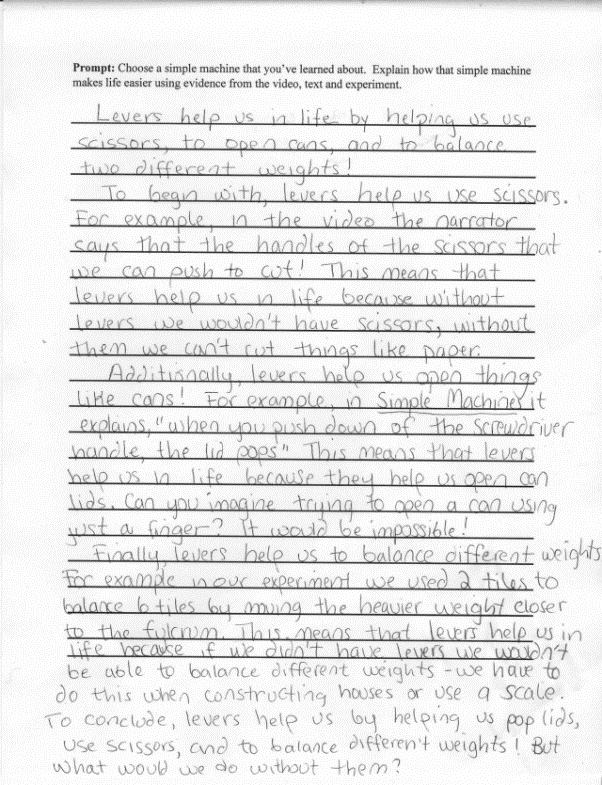 Prompt: Choose a simple machine that you've learned about. Explain how that simple machine
makes life easier using evidence from the video, text and experiment.
Levers help us in life by helping us use
scissors, to open cans, and to balance
two different weights!
To begin with, levers help us use scissors.
For example, in the video the narrator
says that the handles of the scissors that
we can push to cut! This means that
levers help us in life because without
levers we wouldn't have scissors, without
them we can't cut things like paper.
Additionally, levers help us open things
like cans! For example, in Simple Machines it
explains, "when you push down of the screwdriver
handle, the lid pops" This means that levers
help us in life because they help us open can
lids. Can you imagine trying to open a can using
just a finger? It would be impossible!
Finally, levers help us to balance different weights
For example in our experiment we used 2 tiles to
balance 6 tiles by moving the heavier weight closer
to the fulcrum. This means that levers help us in
life because if we didn't have levers we wouldn't
be able to balance different weights - we have to
do this when constructing houses or use a scale.
To conclude, levers help us by helping us pop lids,
use scissors, and to balance different weights! But
what would we do without them?